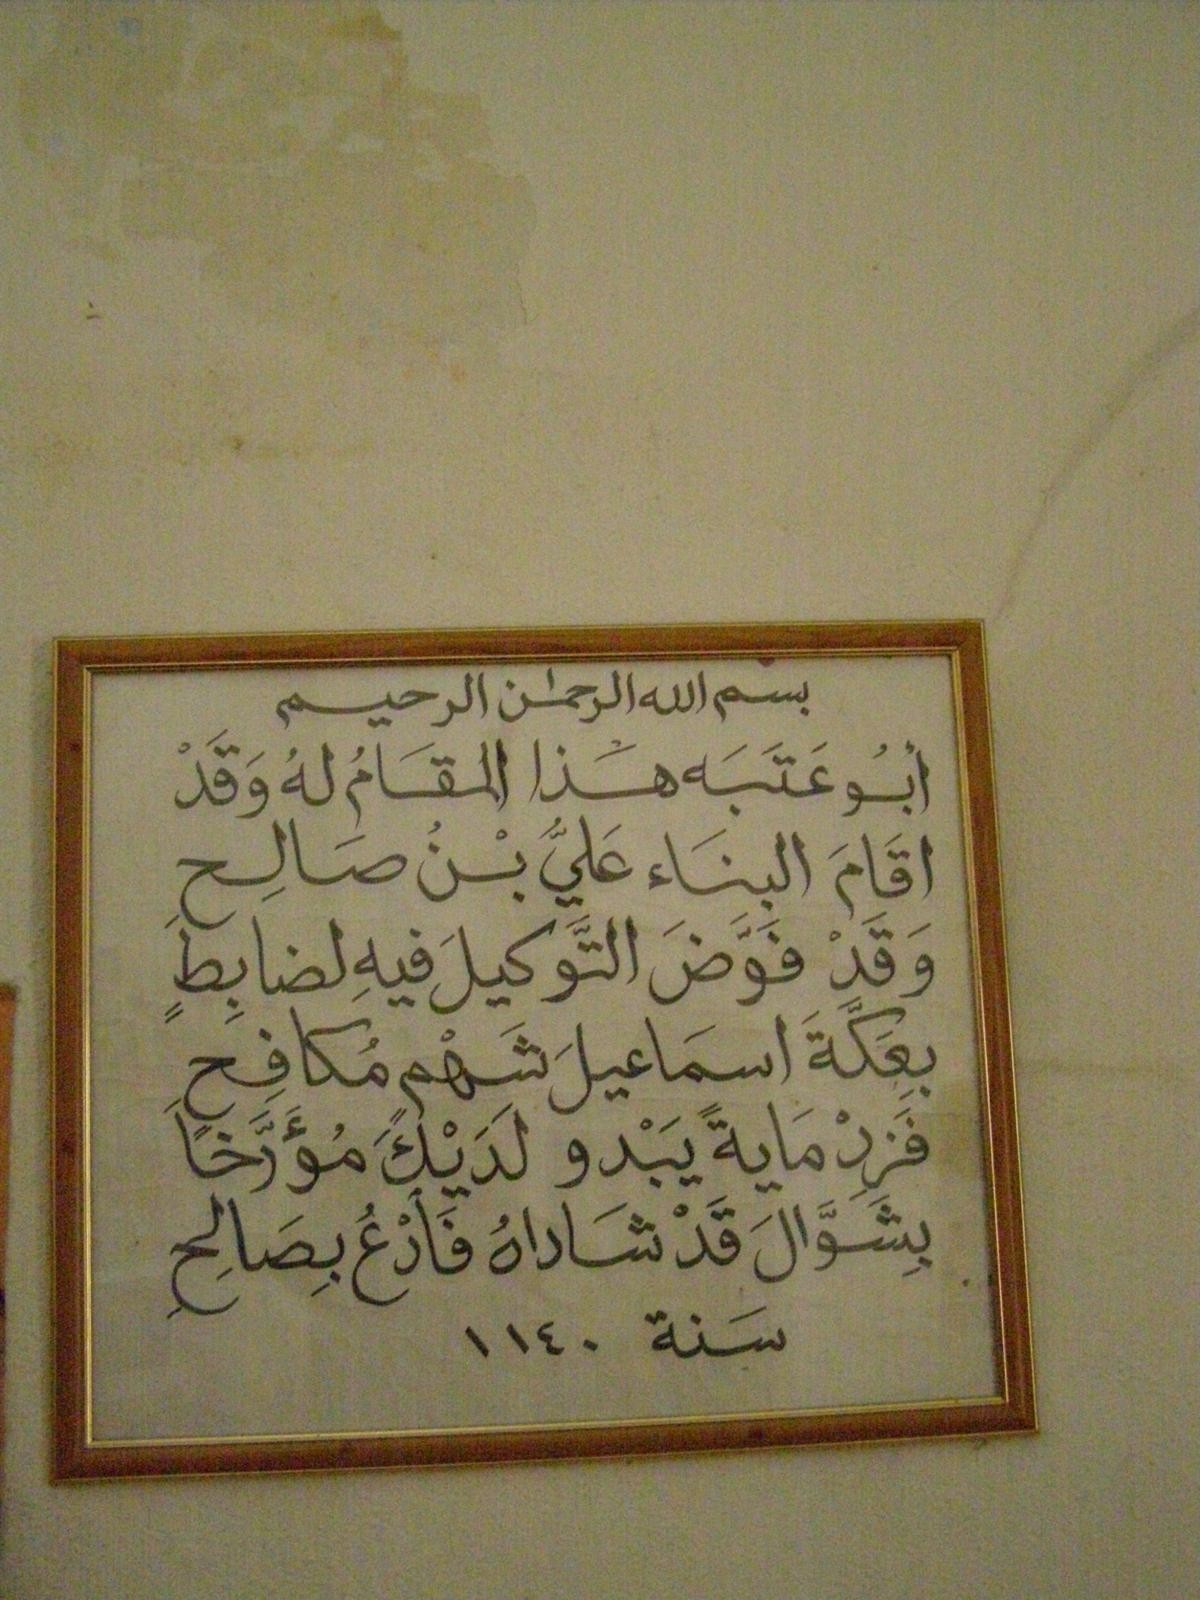 بسم الله الرحمٰن الرحيم
أبُو عَتَبَه هَذا المقَامُ لهُ وَقَدْ
اقَامَ البِنَاء عَليُّ بْنُ صَالِحِ
وَقَدْ فَوَّضَ التَّوكيلَ فيهِ لضابِطٍ
بِعَكَّةَ اسمَاعيلَ شَهْم مُكافِحِ
فَزِدْ مَايةً يَبْدو لَدَيْكَ مُؤَرَّخاً
بِشَوَّالَ قَدْ شَاداهُ فَأدْعُ بِصَالِحِ
سَنة ١١٤٠